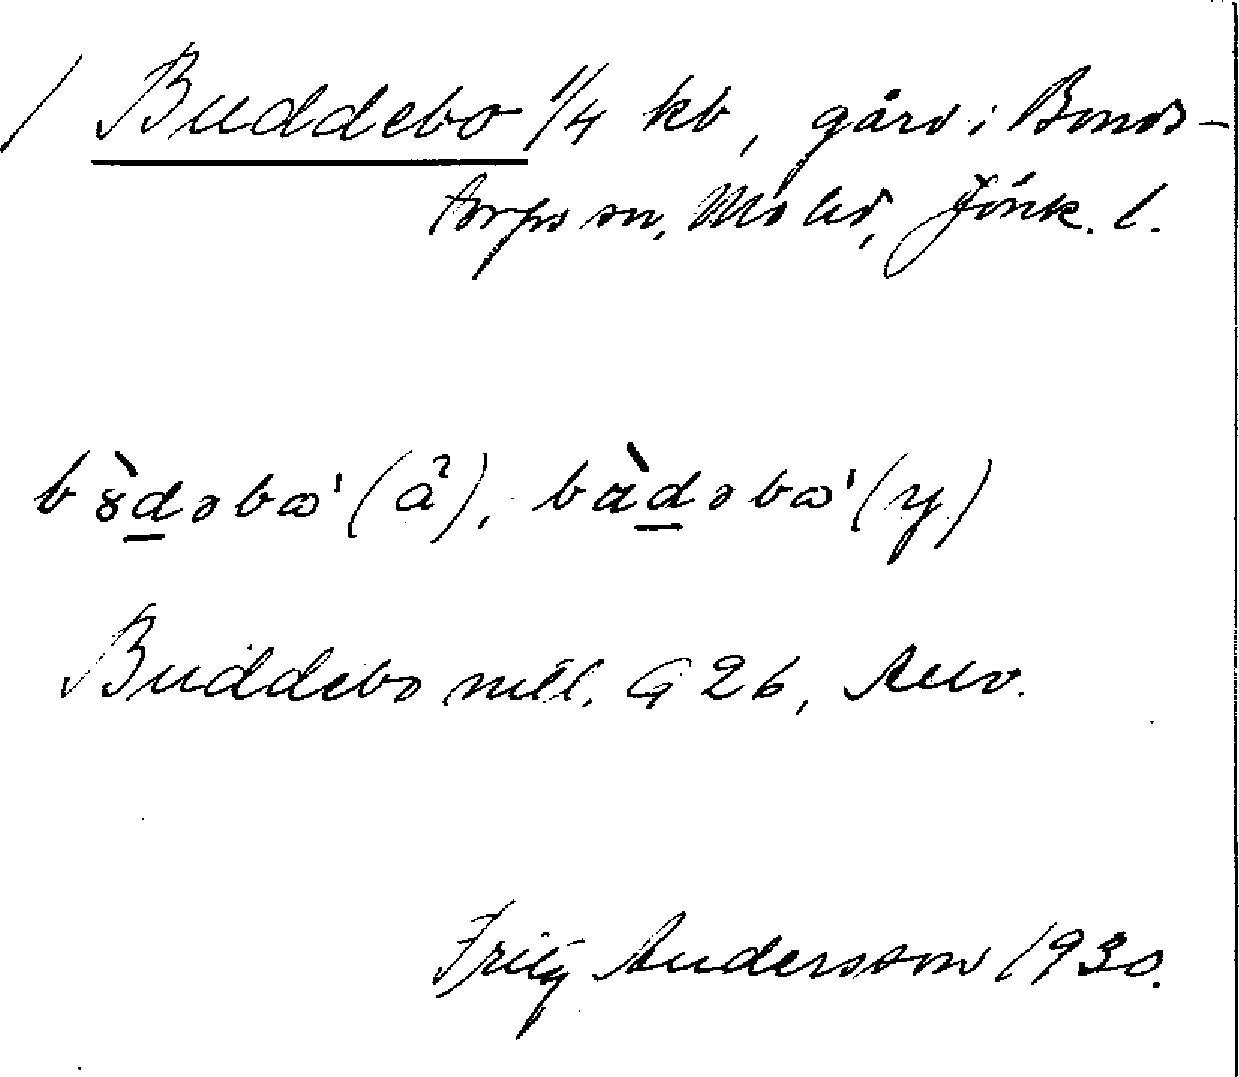 / Buddebo 1/4 kb, gård i Bonds-
torps sn, Mo hd, Jönk. l.
bꝏ̀dəbꝏ' (å²), bàdəbꝏ' (y)
Buddebo mtl. G 26, Allv.
Fritz Andersson 1930.